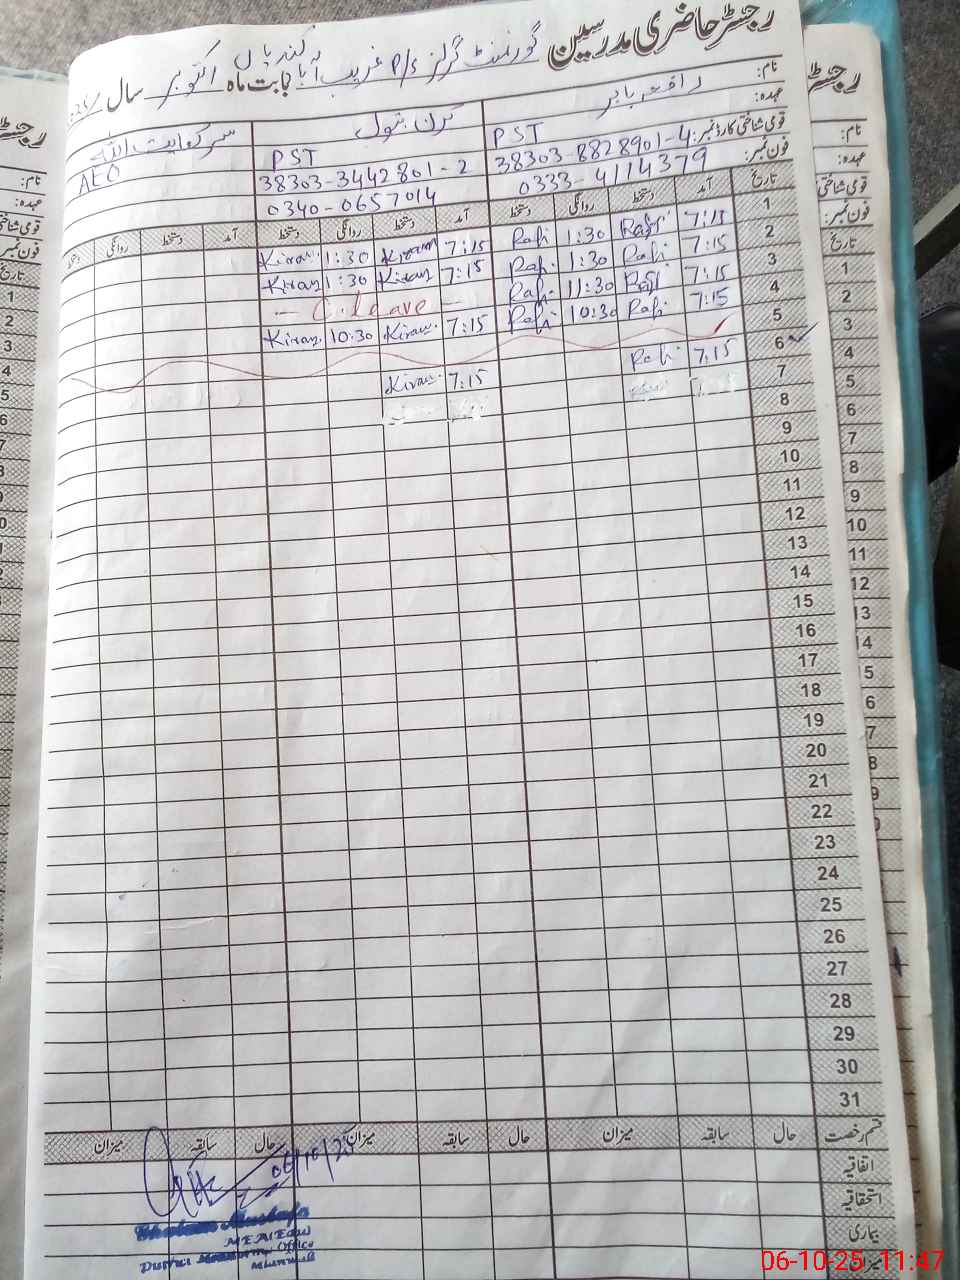 رجسٹر حاضری مدرسین گورنمنٹ گرلز P/S غریب آباد کندیاں بابت ماہ اکتوبر سال
نام: رافعہ بابر کرن بتول سر کفایت اللہ
عہدہ: PST PST AEO
قومی شناختی کارڈ نمبر: 38303-8828901-4 38303-3442801-2
فون نمبر: 0333-4114379 0340-0657014
تاریخ آمد دستخط روانگی دستخط آمد دستخط روانگی دستخط آمد دستخط روانگی دستخط
1 7:15 Rafi 1:30 Rafi 7:15 Kiran 1:30 Kiran
2 7:15 Rafi 1:30 Rafi 7:15 Kiran 1:30 Kiran
3 7:15 Rafi 11:30 Rafi — C.leave —
4 7:15 Rafi 10:30 Rafi 7:15 Kiran 10:30 Kiran
5
6 7:15 Rafi 7:15 Kiran
7
8
9
10
11
12
13
14
15
16
17
18
19
20
21
22
23
24
25
26
27
28
29
30
31
قسم رخصت حال سابقہ میزان حال سابقہ میزان حال سابقہ میزان
اتفاقیہ
استحقاقیہ
بیماری
میزان
06/10/25
MEA
District Office
Mianwali
06-10-25 11:47
رجسٹر
نام:
عہدہ:
قومی شناختی
فون نمبر:
تاریخ
1
2
3
4
5
6
7
8
9
10
11
12
13
14